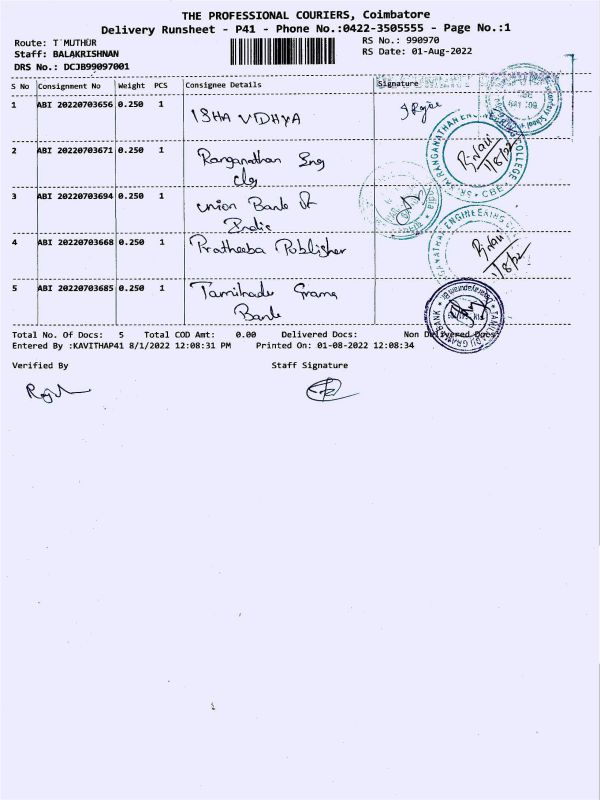 THE PROFESSIONAL COURIERS, Coimbatore
Delivery Runsheet - P41 - Phone No.:0422-3505555 - Page No.:1
Route: T MUTHUR
RS No.: 990970
Staff: BALAKRISHNAN
RS Date: 01-Aug-2022
DRS No.: DCJB99097001
S No Consignment No Weight PCS Consignee Details Signature
1 ABI 20220703656 0.250 1 ISHA VIDHYA
2 ABI 20220703671 0.250 1 Ranganathan Eng
clg
3 ABI 20220703694 0.250 1 union Bank Of
India
4 ABI 20220703668 0.250 1 Pratheeba Publisher
5 ABI 20220703685 0.250 1 Tamilnadu Grama
Bank
SRI RANGANATHAN ENGINEERING COLLEGE CBE
1/8/22
RANGANATHAN ENGINEERING
1/8/22
Total No. Of Docs: 5 Total COD Amt: 0.00 Delivered Docs: Non Delivered Docs:
Entered By :KAVITHAP41 8/1/2022 12:08:31 PM Printed On: 01-08-2022 12:08:34
Verified By Staff Signature